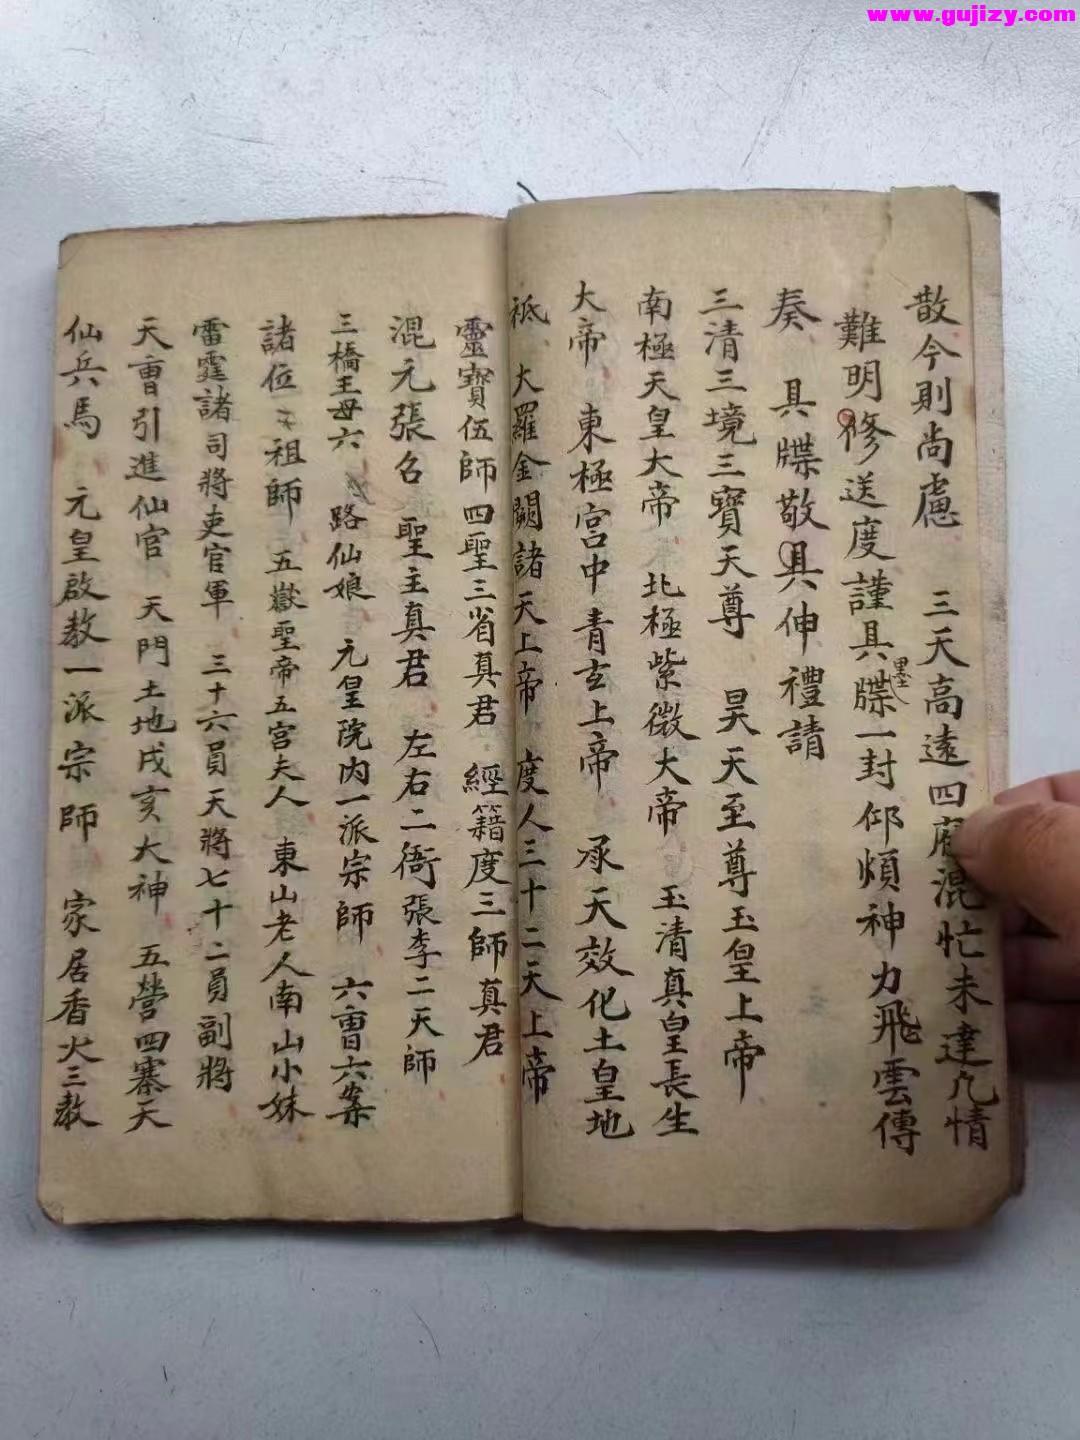 www.gujizy.com
散今則尚慮 三天高遠四府混忙未達凢情
難明修送度謹具牒一封仰煩神力飛雲傳
墨
奏 具牒敬具伸禮請
三清三境三寶天尊 昊天至尊玉皇上帝
南極天皇大帝 北極紫微大帝 玉清真皇長生
大帝 東極宫中青玄上帝 承天效化土皇地
祇 大羅金闕諸天上帝 度人三十二天上帝
靈寶伍師四聖三省真君 經籍度三師真君
混元張名 聖主真君 左右二衙張李二天師
三橋王母六 路仙娘 元皇院内一派宗師 六曹六案
諸位 祖師 五嶽聖帝五宫夫人 東山老人南山小妹
雷霆諸司將吏官軍 三十六員天將七十二員副將
天曹引進仙官 天門土地戌亥大神 五營四寨天
仙兵馬 元皇啟教一派宗師 家居香火三教